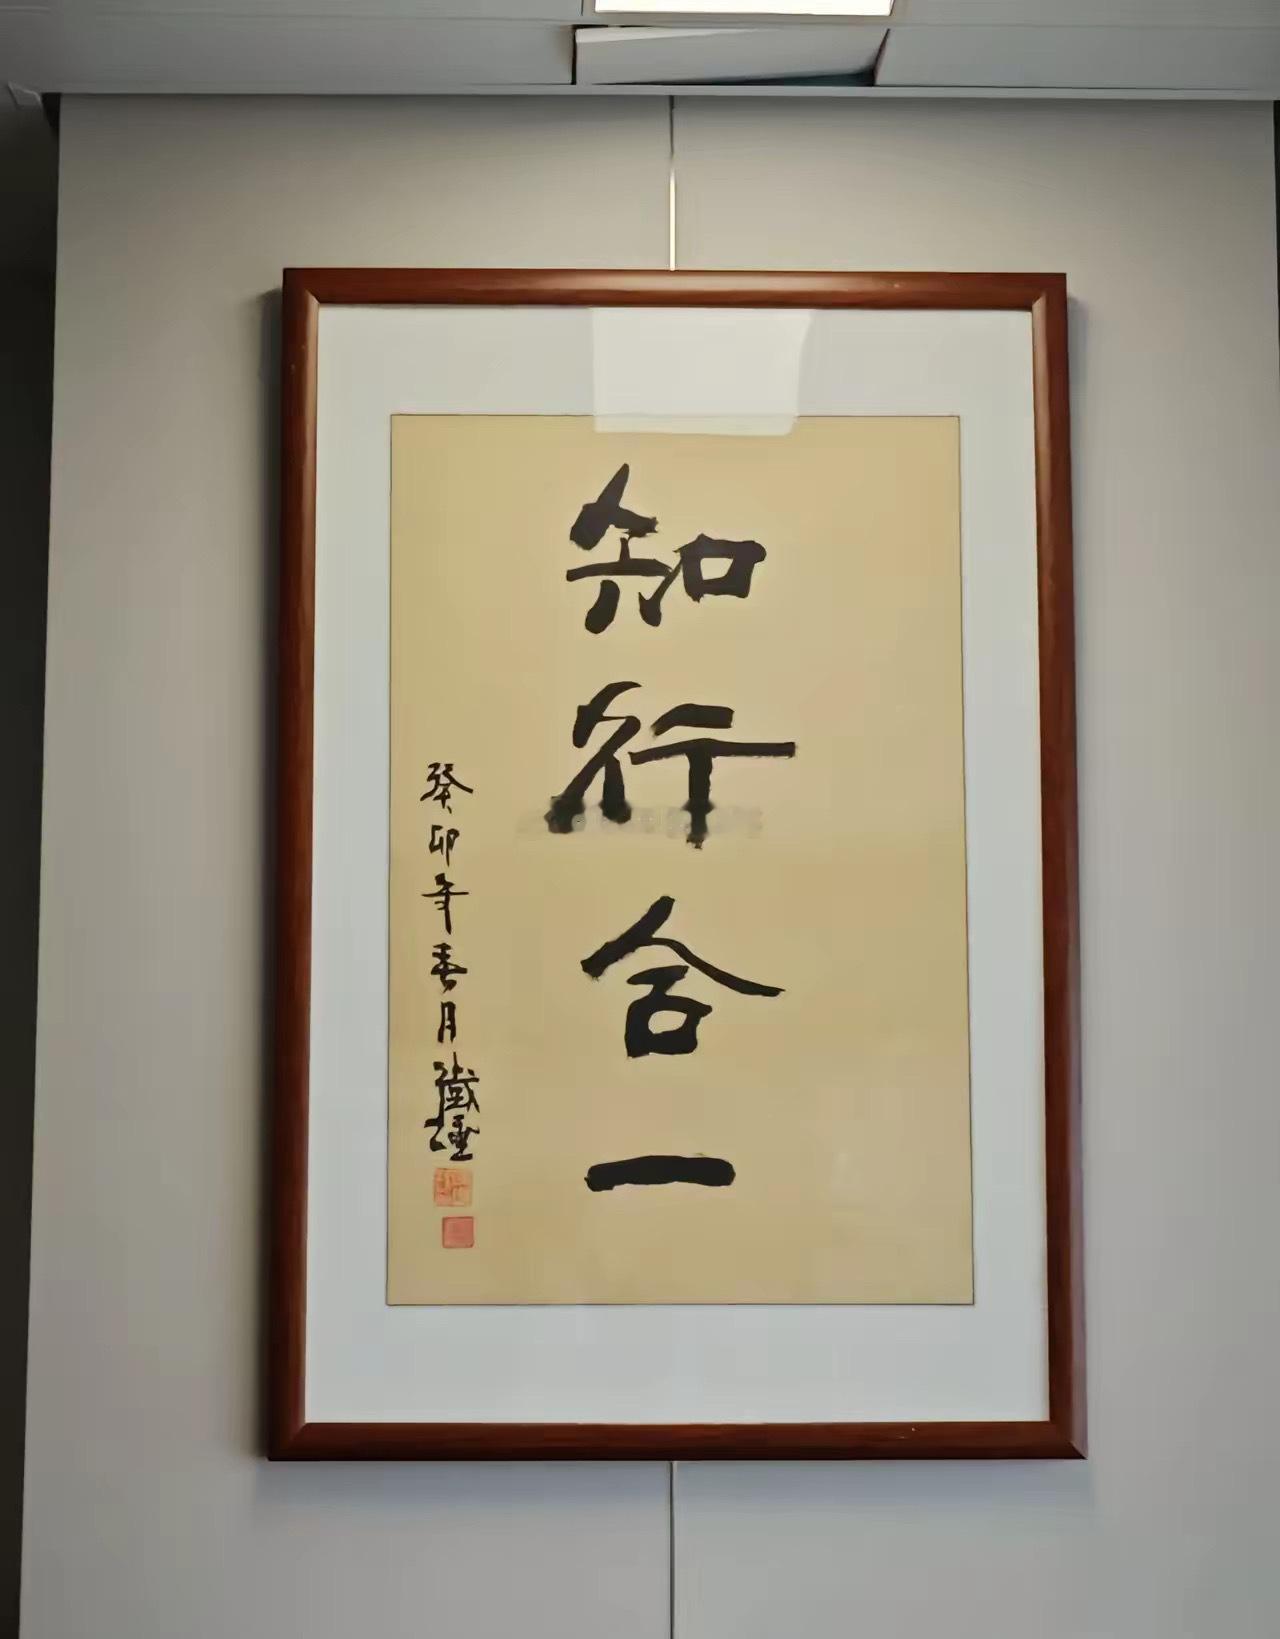 知行合一
癸卯年春月鐵䥫